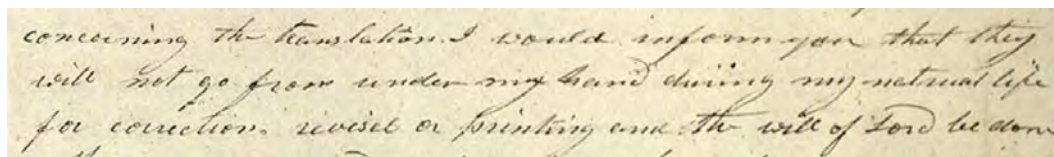 concerning the translation I would inform you that they
will not go from under my hand during my natrual life
for correction, revisel or printing and the will of Lord be done